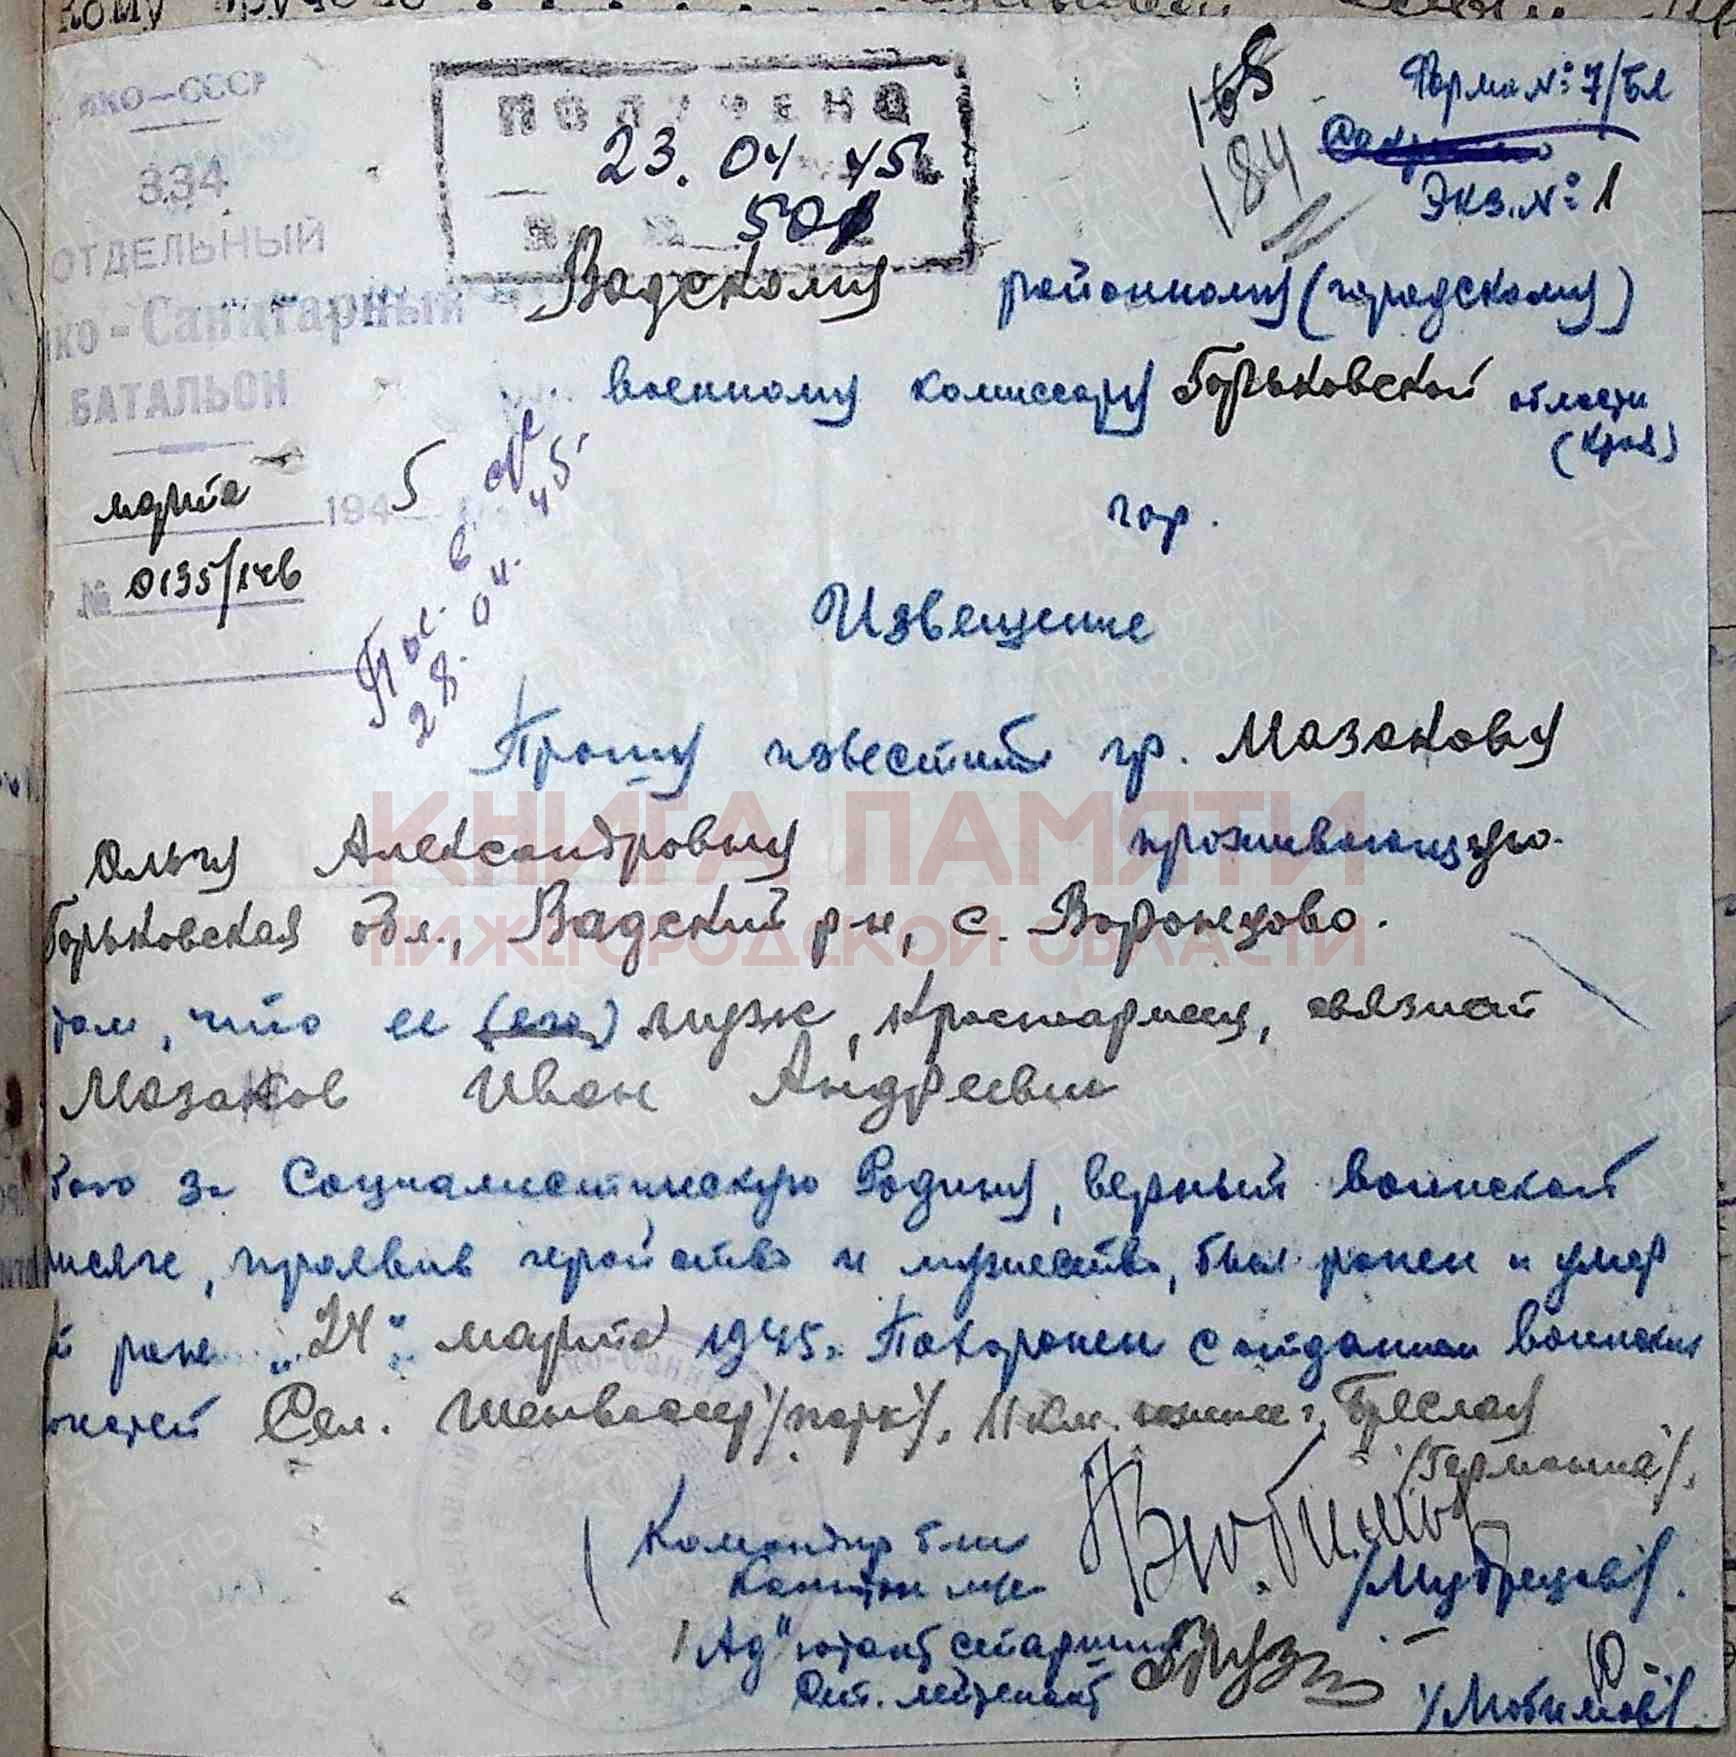 НКО-СССР
334
ОТДЕЛЬНЫЙ
ко-Санитарный
БАТАЛЬОН
марта 1945
№ 0135/148
ПОЛУЧЕНО
23.04.45г
501
168
184
Форма №: 7/бл
Экз. №: 1
Вадскому районному (городскому)
военному комиссару Горьковской области
(края)
гор.
28.04.45
Извещение
Прошу известить гр. Мазакову
Ольгу Александровну проживающую.
Горьковская обл., Вадский р-н, с. Воронцово.
том, что ее (его) муж, красноармеец, связной
Мазаков Иван Андреевич
бою за Социалистическую Родину, верный воинской
присяге, проявив геройство и мужество, был ранен и умер
ран "24" марта 1945г. Похоронен с отданием воинских
почестей Сел. /парк/, 11 км. южнее г. Бреслау
/Германия/.
Командир б-на
Капитан м/с /Мудрецов/.
Ад"ютант старший
Ст. лейтенант /Любимов/
КНИГА ПАМЯТИ
НИЖЕГОРОДСКОЙ ОБЛАСТИ
ПАМЯТЬ НАРОДА